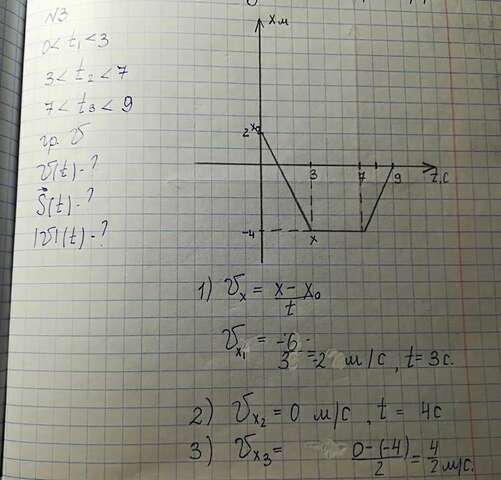 N3
0 < t₁ < 3
3 < t₂ < 7
7 < t₃ < 9
гр. v
v(t) - ?
S⃗(t) - ?
|v|(t) - ?
x м
2 x₀
3 7 9 t, с
-4
x
1) vₓ = (x - x₀)/t
vₓ₁ = -6/3 = -2 м/с, t = 3с.
2) vₓ₂ = 0 м/с, t = 4с
3) vₓ₃ = (0-(-4))/2 = 4/2 м/с.